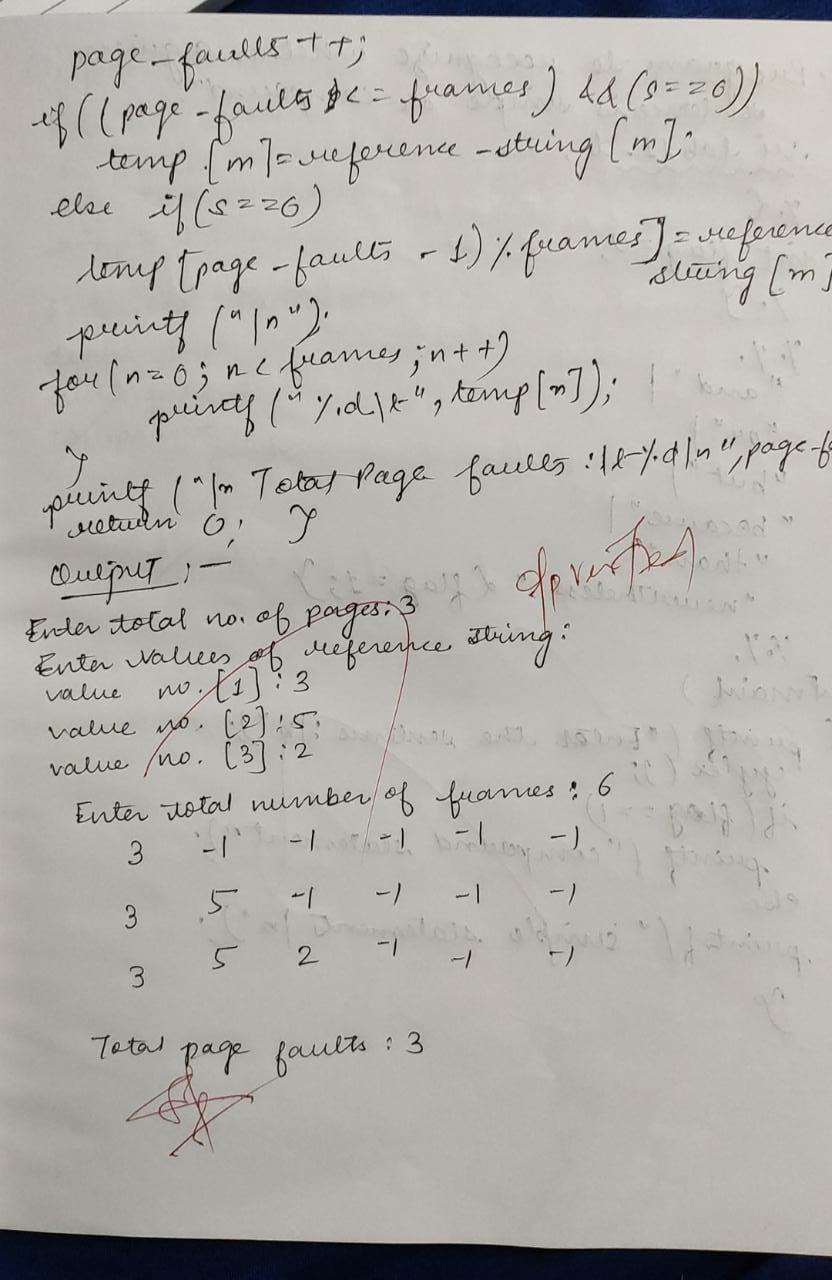 page-faults ++;
if((page-faults <= frames) && (s==0))
temp [m]=reference-string [m];
else if(s==0)
temp [page-faults - 1) % frames] = reference
string [m]
printf ("\n");
for(n=0; n< frames; n++)
printf ("%d\t", temp[n]);
}
printf ("\n Total Page faults :\t%d\n", page-f
return 0; }
Output :-
o/p verified
Enter total no. of pages: 3
Enter values of reference string:
value no. [1] : 3
value no. [2] : 5
value no. [3] : 2
Enter total number of frames : 6
3 -1 -1 -1 -1 -1
3 5 -1 -1 -1 -1
3 5 2 -1 -1 -1
Total page faults : 3